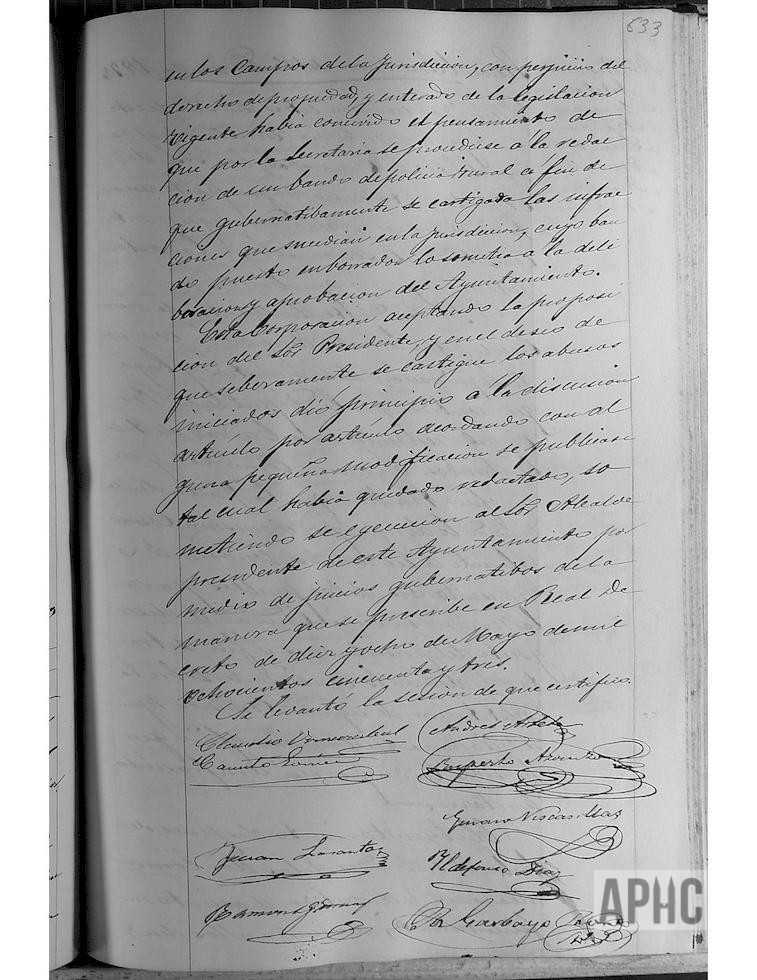 633
en los Campos de la Jurisdiccion, con perjuicio del
derecho de propiedad, y enterado de la legislacion
vigente habia concevido el pensamiento de
que por la Secretaria se procediese a la redac
cion de un bando de policia rural a fin de
que gubernatibamente se castigada las infrac
ciones que sucedian en la jurisdiccion, cuyo ban
do puesto en borrador lo sometia a la deli
beracion y aprobacion del Ayuntamiento.
Esta Corporacion aceptando la proposi
cion del Sor Presidente, y en el deseo de
que seberamente se castigue los abusos
iniciados dió principio a la discusion
artículo por artículo acordando con al
guna pequeña modificacion se publicase
tal cual habia quedado redactado, so
metiendo se egecucion al Sor Alcalde
presidente de este Ayuntamiento por
medio de juicios gubernatibos de la
manera que se prescribe en Real De
creto de diez y ocho de Mayo de mil
ochocientos cincuenta y tres.
Se levantó la sesion de que certifico.
Claudio
Andres
Ruperto
Genaro Viscasillas
Juan
Ildefonso Diaz
Ramon
Garbayo
APHC